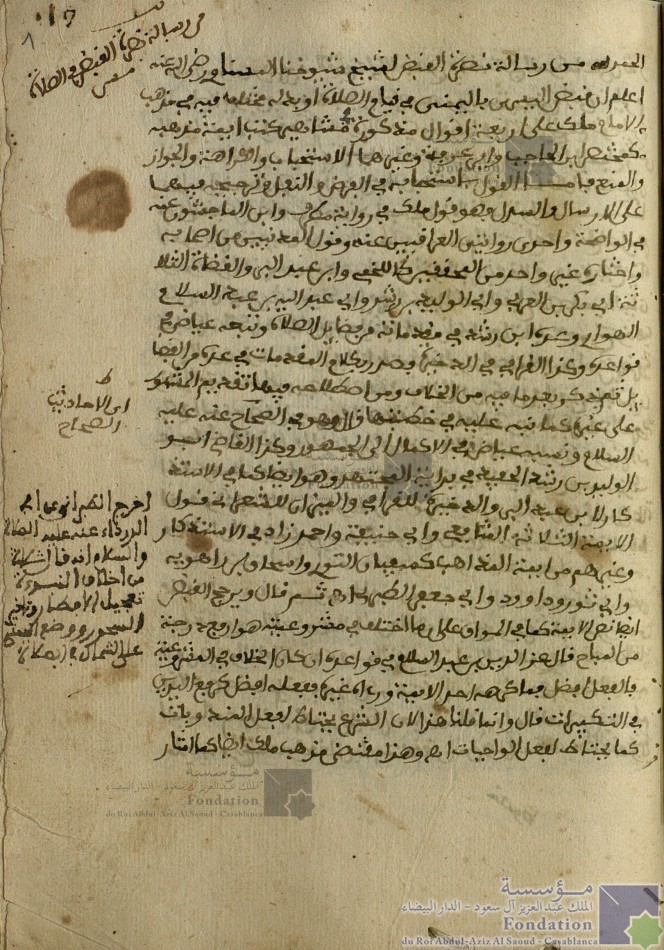 من رسالة نصرة القبض في الصلاة
الحمد لله من رسالة نصرة القبض لشيخ شيوخنا المسناوي رضي الله عنه
اعلم ان قبض اليسرى باليمنى في قيام الصلاة او بدله مختلف فيه في مذهب
الامام ملك على اربعة اقوال مذكورة في مشاهير كتب ايمة مذهبه
كمختصر ابن الحاجب وابن عرفة وغيرهما الاستحباب والكراهة والجواز
والمنع فاما القول باستحبابه في الفرض والنفل وترجيحه فيهما
على الارسال والسدل وهو قول ملك في رواية مطرف وابن الماجشون عنه
في الواضحة واحدى روايتي العراقيين عنه وقول المدنيين من اصحابه
واختاره غير واحد من المحققين كاللخمي وابن عبد البر والقضاة الثلا
ثة ابي بكر بن العربي وابي الوليد بن رشد وابي عبد الله بن عبد السلام
الهواري وعده ابن رشد في مقدماته من فضايل الصلاة وتبعه عياض في
قواعده وكذا القرافي في الذخيرة وصدر بكلام المقدمات في عده من الفضا
يل ثم ذكر بعد ما فيه من الخلاف ومن اصطلاحه فيها تقديم المشهور
على غيره كما نبه عليه في خطبتها قال وهو في الصحاح عنه عليه
السلام ونسبه عياض في الاكمال الى الجمهور وكذا القاضي ابو
الوليد بن رشد الحفيد في بداية المجتهد وهو ايضا كما في الاستذ
كار لابن عبد البر والذخيرة للقرافي والميزان للشعراني قول
الايمة الثلاثة الشافعي وابي حنيفة واحمد زاد في الاستذكار
وغيرهم من ايمة المذاهب كسفيان الثوري واسحاق بن راهويه
وابي ثور وداوود وابي جعفر الطبري اه ثم قال ويرجح القبض
ايضا نص الايمة كما في المواق على ان ما اختلف في مشروعيته هو ارفع درجة
من المباح قال عز الدين بن عبد السلام في قواعده ان كان الخلاف في المشروعية
فالفعل افضل فما كرهه احد الايمة وراءاه غيره ففعله افضل كرفع اليدين
في التكبيرات قال وانما قلنا هذا لان الشرع يحتاط لفعل المندوبات
كما يحتاط لفعل الواجبات اه وهذا مقتضى مذهب ملك ايضا كما اشار
اي الاحاديث
الصحاح
اخرج الطبراني عن ابي
الدرداء عنه عليه الصلاة
والسلام انه قال ثلاثة
من اخلاق النبوءة
تعجيل الافطار وتاخير
السحور ووضع اليمين
على الشمال في الصلاة
مؤسسة
الملك عبد العزيز آل سعود - الدار البيضاء
Fondation
du Roi Abdul-Aziz Al Saoud - Casablanca
مؤسسة
الملك عبد العزيز آل سعود - الدار البيضاء
Fondation
du Roi Abdul-Aziz Al Saoud - Casablanca